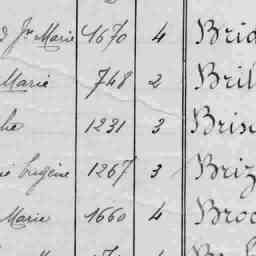 d Jn Marie 1670 4 Brid
Marie 748 2 Bril
he 1231 3 Bris
ie Eugène 1267 3 Briz
Marie 1660 4 Broc